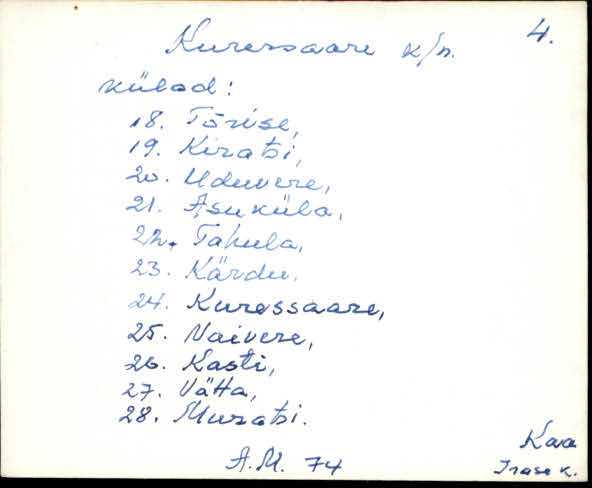 Kuressaare k/n.
4.
külad:
18. Tõrise,
19. Kiratsi,
20. Uduvere,
21. Asuküla,
22. Tahula,
23. Kärdu,
24. Kuressaare,
25. Vaivere,
26. Kasti,
27. Vätta,
28. Muratsi.
A.M. 74
Kaa
Irase k.